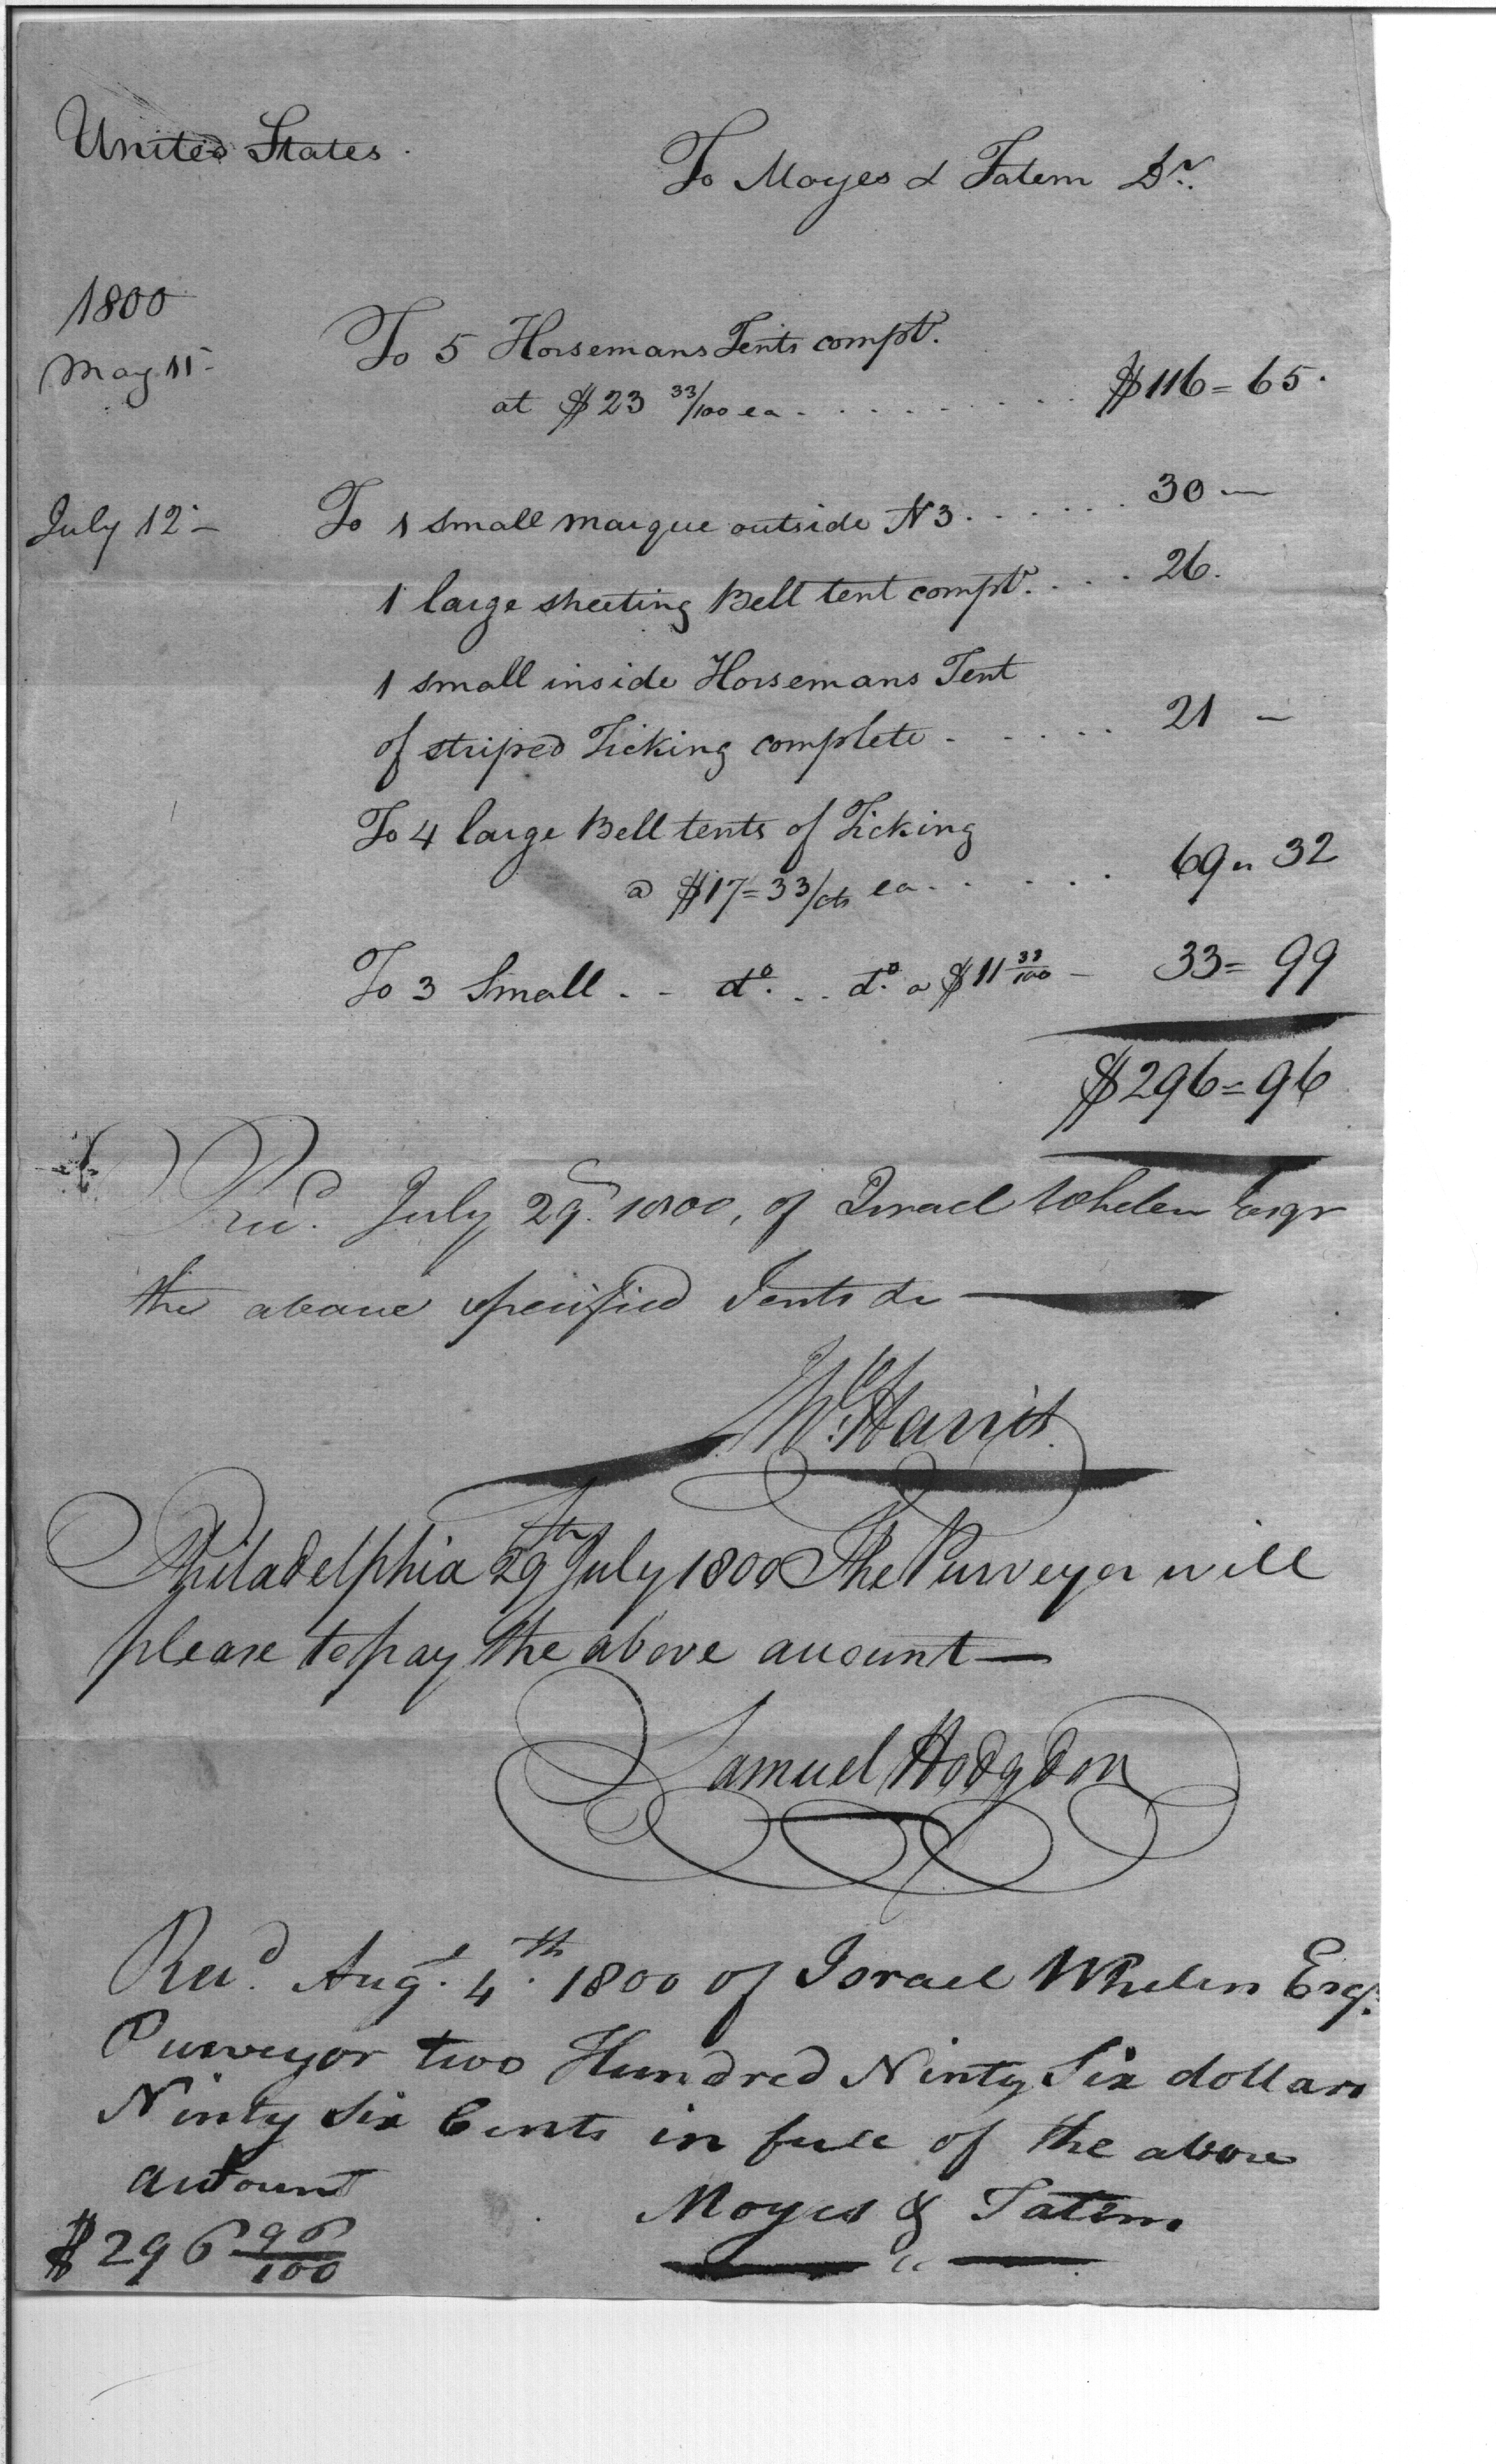 United States.
To Moyes & Tatem Dr.
1800
May 11 -
To 5 Horsemans Tents compt.
at $23 33/100 ea . . . . . . . . . $116=65.
July 12 - To 1 small marque outside N3 . . . . . . 30 —
1 large sheeting Bell tent compt. . . . 26.
1 small inside Horsemans Tent
of striped Ticking complete . . . . . 21 —
To 4 large Bell tents of Ticking
a $17=33/cts ea . . . . . 69 " 32
To 3 Small . - do. . . do. a $11 33/100 - 33= 99
$296=96
Recd. July 29. 1800, of Israel Whelen Esqr
the above specified Tents &c
Wm. Harris
Philadelphia 29th July 1800 The Purveyor will
please to pay the above account —
Samuel Hodgdon
Recd. Augt. 4th. 1800 of Israel Whelen Esqr.
Purveyor two Hundred Ninty Six dollars
Ninty Six Cents in full of the above
account
Moyes & Tatem
$296 96/100